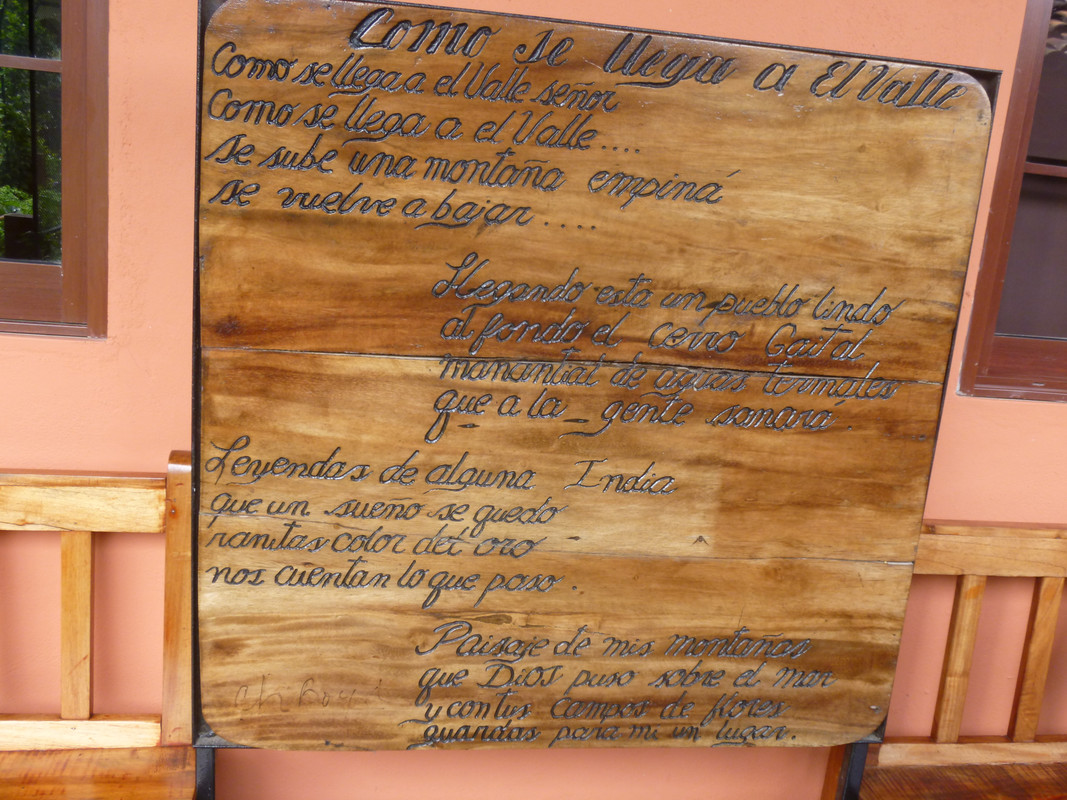 Como se llega a El Valle
Como se llega a el Valle señor
Como se llega a el Valle....
se sube una montaña empiná
se vuelve a bajar.....
Llegando esta un pueblo lindo
al fondo el cerro Gaital
manantial de aguas termales
que a la gente sanará.
Leyendas de alguna India
que un sueño se quedo
ranitas color del oro
nos cuentan lo que paso.
Paisaje de mis montañas
que Dios puso sobre el mar
y con tus campos de flores
guardas para mi un lugar.